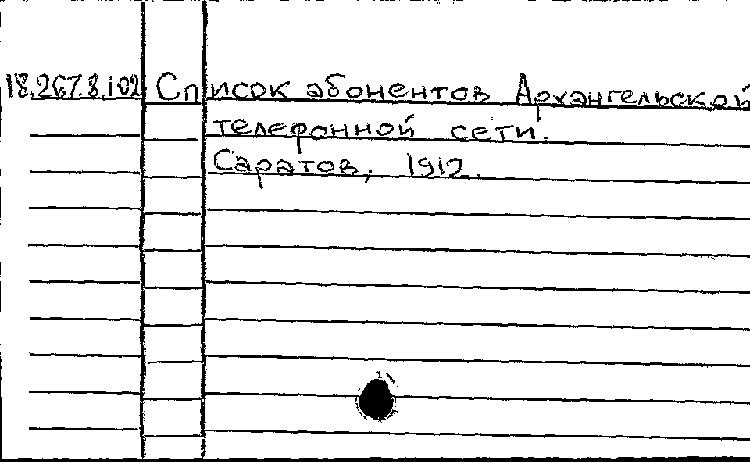 18.267.8.102 Список абонентов Архангельской
телефонной сети.
Саратов, 1912.